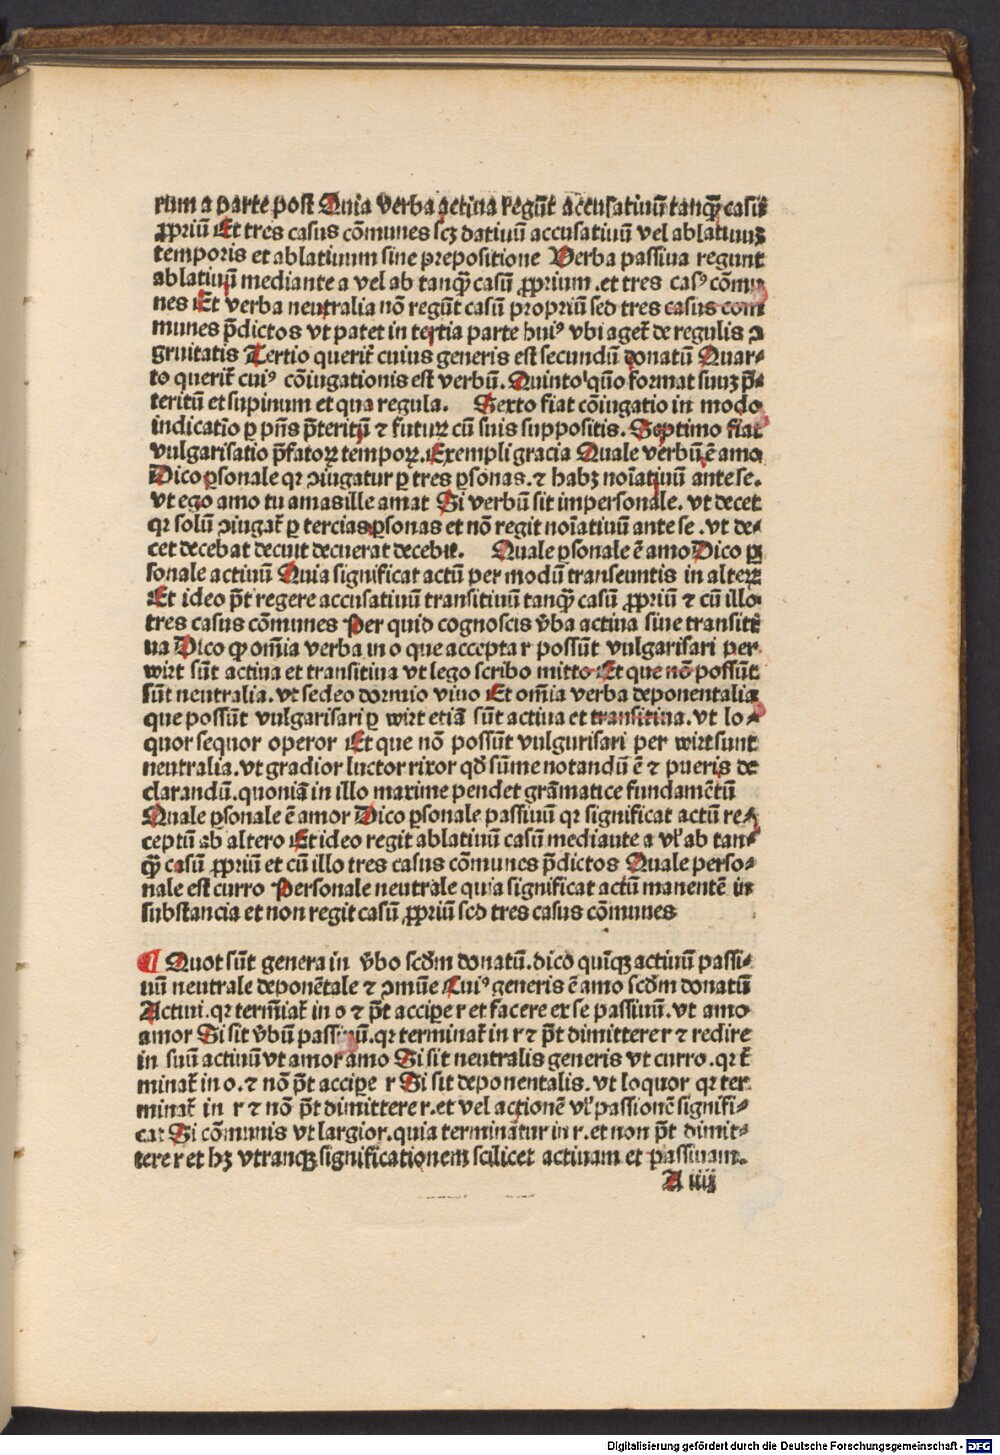 rum a parte post Quia verba actiua regūt accusatiuū tanq̄ꝫ casū
ꝓpriū Et tres casus cōmunes scꝫ datiuū accusatiuū vel ablatiuuꝫ
temporis et ablatiuum sine prepositione Verba passiua regunt
ablatiuū mediante a vel ab tanq̄ꝫ casū ꝓprium .et tres casꝰ cōmu
nes Et verba neutralia nō regūt casū propriū sed tres casus com
munes p̄dictos vt patet in tertia parte huiꝰ vbi aget̄ de regulis ꝯ
gruitatis Tertio querit̄ cuius generis est secundū donatū Quar⸗
to querit̄ cuiꝰ cōiugationis est verbū. Quinto quō format suuꝫ p̄⸗
teritū et supinum et qua regula. Sexto fiat cōiugatio in modo
indicatio ꝑ pn̄s p̄teritū ⁊ futuꝝ cū suis suppositis. Septimo fiat
vulgarisatio p̄fatoꝝ tempoꝝ. Exempli gracia Quale verbū ē amo
Dico ꝑsonale qꝛ ꝯiugatur ꝑ tres ꝑsonas. ⁊ habꝫ noīatiuū ante se.
vt ego amo tu amas ille amat Si verbū sit impersonale. vt decet
qꝛ solū ꝯiugat̄ ꝑ tercias ꝑsonas et nō regit noīatiuū ante se .vt de⸗
cet decebat decuit decuerat decebit. Quale ꝑsonale ē amo Dico ꝑ
sonale actiuū Quia significat actū per modū transeuntis in alteꝝ
Et ideo pōt regere accusatiuū transitiuū tanq̄ꝫ casū ꝓpriū ⁊ cū illo
tres casus cōmunes Per quid cognoscis v̄ba actiua siue transiti
ua Dico ꝙ om̄ia verba in o que accepta r possūt vulgarisari per
wirt sūt actiua et transitiua vt lego scribo mitto Et que nō possūt
sūt neutralia. vt sedeo dormio viuo Et om̄ia verba deponentalia
que possūt vulgarisari ꝑ wirt etiā sūt actiua et transitiua. vt lo⸗
quor sequor operor Et que nō possūt vulgurisari per wirt sunt
neutralia. vt gradior luctor rixor qd̄ sūme notandū ē ⁊ pueris de
clarandū. quoniā in illo maxime pendet grāmatice fundamētū
Quale ꝑsonale ē amor Dico ꝑsonale passiuū qꝛ significat actū re⸗
ceptū ab altero Et ideo regit ablatiuū casū mediante a vl̓ ab tan⸗
q̄ꝫ casū ꝓpriū et cū illo tres casus cōmunes p̄dictos Quale perso⸗
nale est curro Personale neutrale quia significat actū manentē in
substancia et non regit casū ꝓpriū sed tres casus cōmunes
¶ Quot sūt genera in v̄bo scd̄m donatū. dico quīqꝫ actiuū passi⸗
uū neutrale deponētale ⁊ ꝯmūe Cuiꝰ generis ē amo scd̄m donatū
Actiui. qꝛ term̄iat̄ in o ⁊ pōt accipe r et facere ex se passiuū. vt amo
amor Si sit v̄bū passiuū. qꝛ terminat̄ in r ⁊ pōt dimittere r ⁊ redire
in suū actiuū vt amor amo Si sit neutralis generis vt curro. qꝛ t̄
minat̄ in o. ⁊ nō pōt accipe r Si sit deponentalis. vt loquor qꝛ ter
minat̄ in r ⁊ nō pōt dimittere r. et vel actionē vl̓ passionē signifi⸗
cat Si cōmunis vt largior. quia terminatur in r. et non pōt dimit⸗
tere r et hꝫ vtranqꝫ significationem scilicet actiuam et passiuam.
A iiij
Digitalisierung gefördert durch die Deutsche Forschungsgemeinschaft - DFG